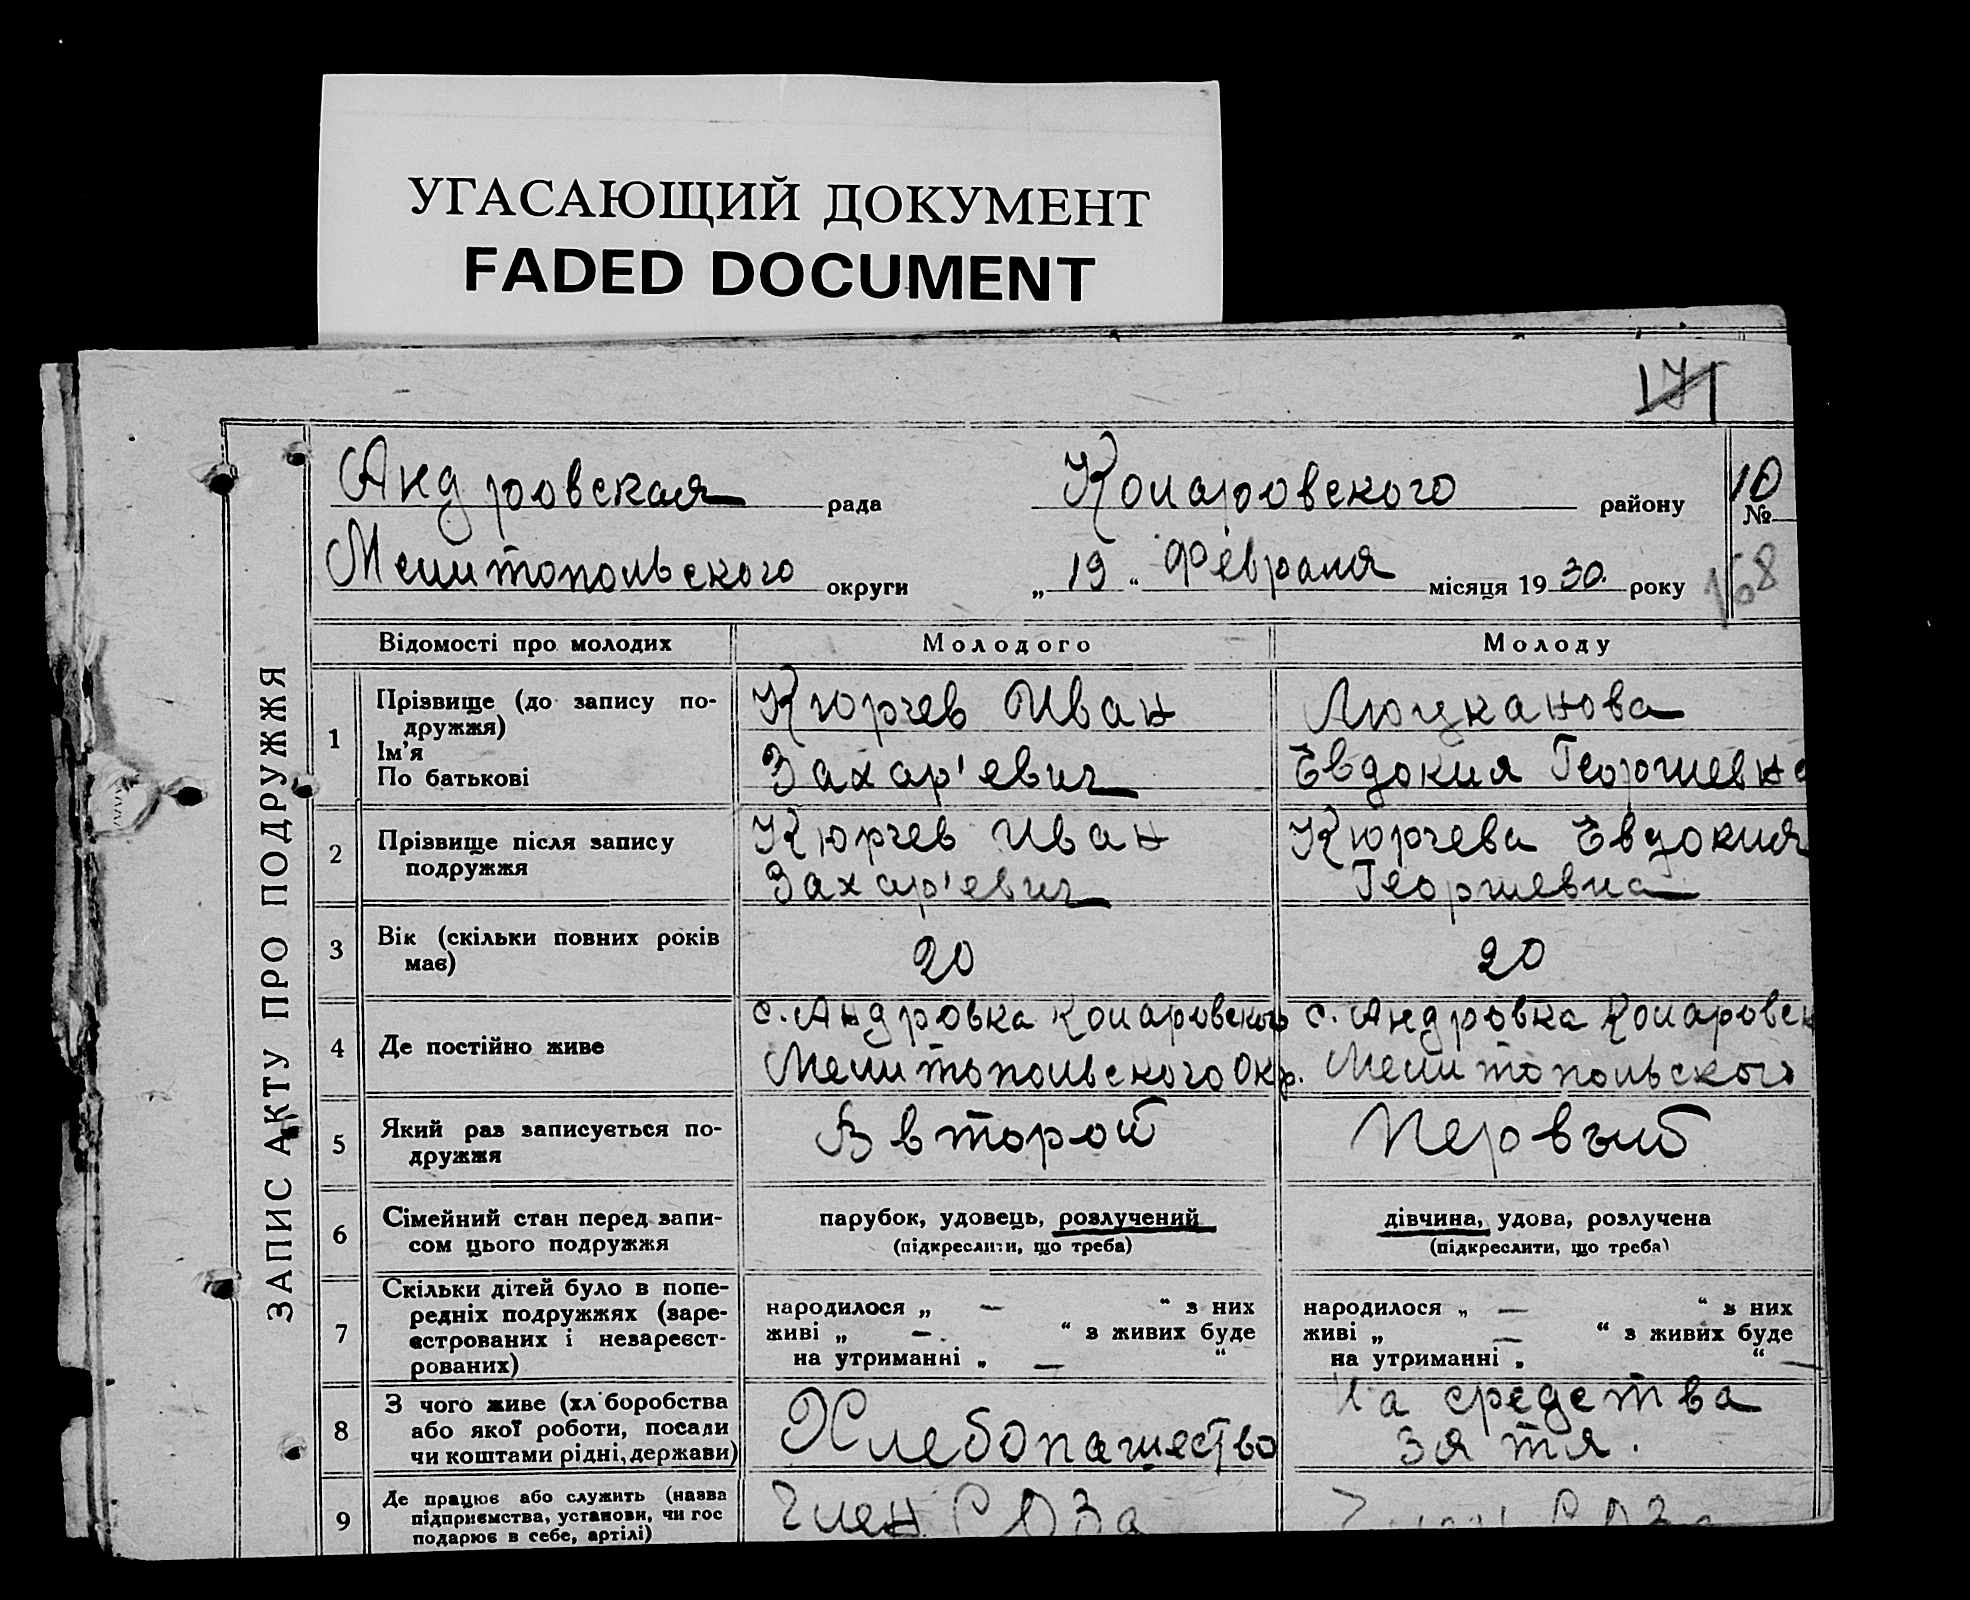 УГАСАЮЩИЙ ДОКУМЕНТ
FADED DOCUMENT
171
Андровская рада Коларовского району 10 №
Мелитопольского округи „ 19 “ Февраля місяця 19 30. року 168
ЗАПИС АКТУ ПРО ПОДРУЖЖЯ
Відомості про молодих Молодого Молоду
1 Прізвище (до запису по-
дружжя)
Ім'я
По батькові
Кюрчев Иван
Захар'евич
Люцканова
Евдокия Георгиевна
2 Прізвище після запису
подружжя
Кюрчев Иван
Захар'евич
Кюрчева Евдокия
Георгиевна
3 Вік (скільки повних років
має)
20
20
4 Де постійно живе
с. Андровка Коларовского
Мелитопольского Окр.
с. Андровка Коларовск
Мелитопольского
5 Який раз записується по-
дружжя
Второй
Первый
6 Сімейний стан перед запи-
сом цього подружжя
парубок, удовець, розлучений
(підкреслити, що треба)
дівчина, удова, розлучена
(підкреслити, що треба)
7 Скільки дітей було в попе-
редніх подружжях (заре-
єстрованих і незареєст-
рованих)
народилося „ — “ з них
живі „ —. “ з живих буде
на утриманні „ — “
народилося „ — “ з них
живі „ — “ з живих буде
на утриманні „ “ —
8 З чого живе (хліборобства
або якої роботи, посади
чи коштами рідні, держави)
Хлебопашество
На средства
зятя.
9 Де працює або служить (назва
підприємства, установи, чи гос
подарює в себе, артілі)
Член СОЗа
Член СОЗа